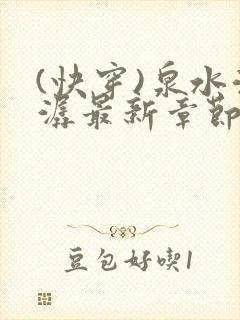 (快穿)泉水
潺最新章節
豆包好喫1